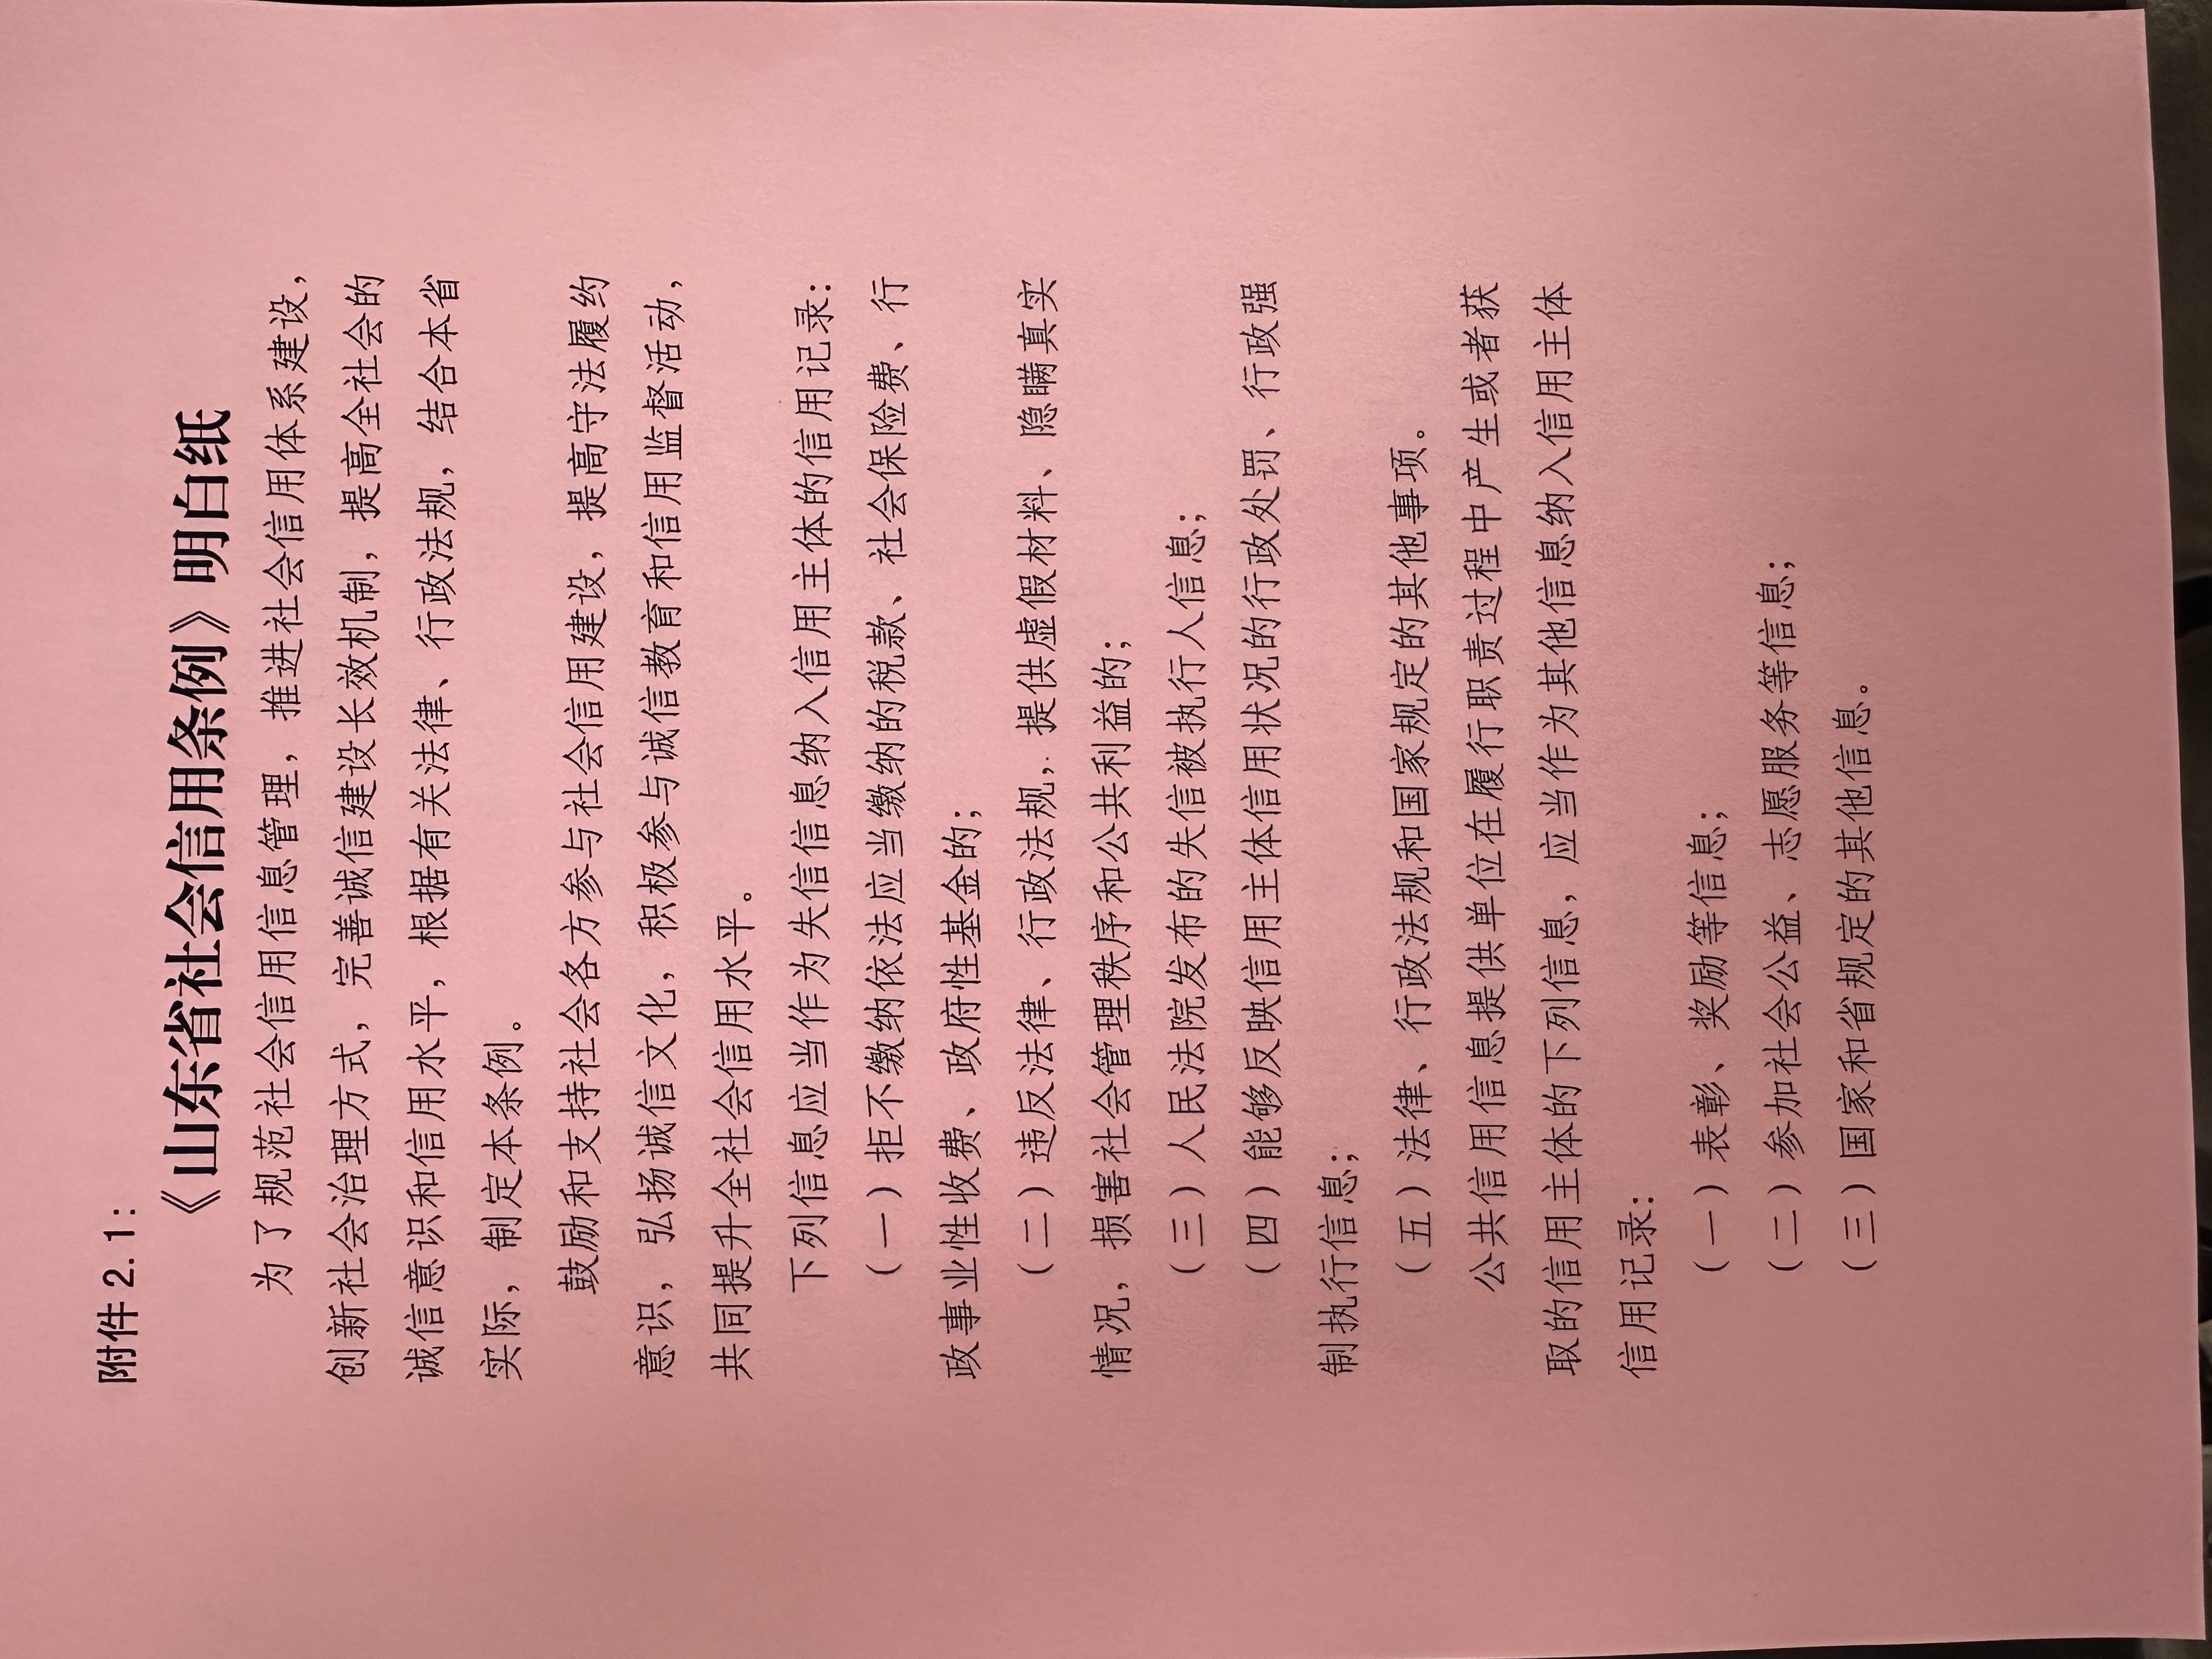 附件 2.1：
《山东省社会信用条例》明白纸
为了规范社会信用信息管理，推进社会信用体系建设，
创新社会治理方式，完善诚信建设长效机制，提高全社会的
诚信意识和信用水平，根据有关法律、行政法规，结合本省
实际，制定本条例。
鼓励和支持社会各方参与社会信用建设，提高守法履约
意识，弘扬诚信文化，积极参与诚信教育和信用监督活动，
共同提升全社会信用水平。
下列信息应当作为失信信息纳入信用主体的信用记录：
（一）拒不缴纳依法应当缴纳的税款、社会保险费、行
政事业性收费、政府性基金的；
（二）违反法律、行政法规，提供虚假材料、隐瞒真实
情况，损害社会管理秩序和公共利益的；
（三）人民法院发布的失信被执行人信息；
（四）能够反映信用主体信用状况的行政处罚、行政强
制执行信息；
（五）法律、行政法规和国家规定的其他事项。
公共信用信息提供单位在履行职责过程中产生或者获
取的信用主体的下列信息，应当作为其他信息纳入信用主体
信用记录：
（一）表彰、奖励等信息；
（二）参加社会公益、志愿服务等信息；
（三）国家和省规定的其他信息。